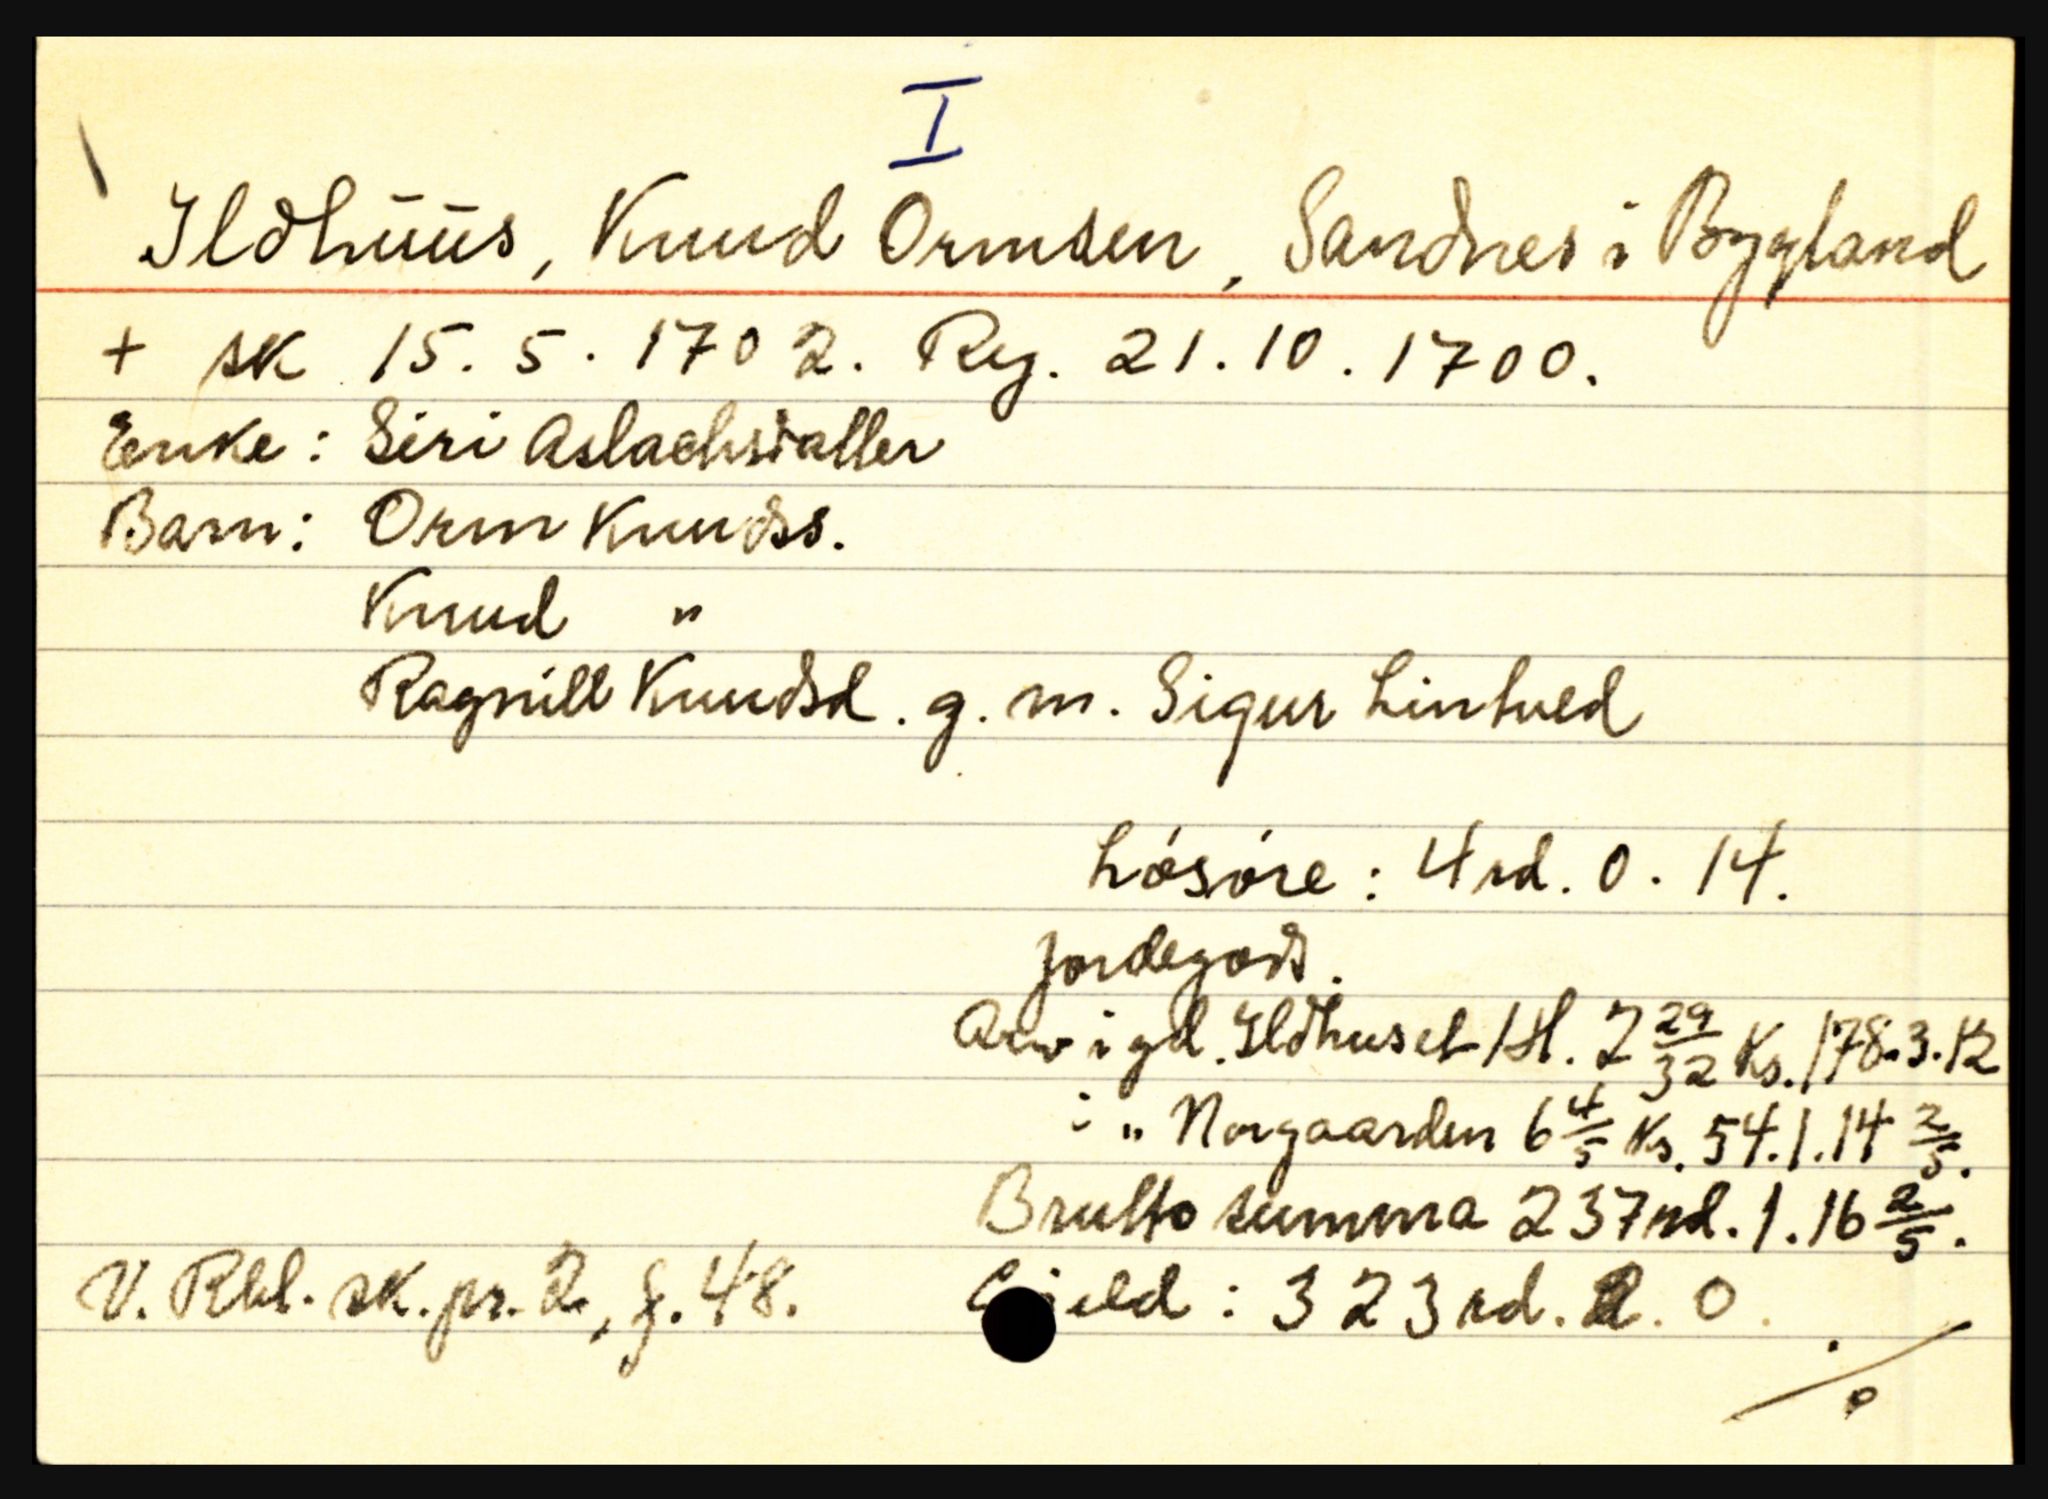 I
Ildhūūs, Knud Ormsen, Sandnes i Bygland
+ sk 15.5.1702. Reg. 21.10.1700.
Enke: Siri Aslachsdatter
Barn: Orm Knudss.
Knud "
Ragnill Knudsd. g.m. Sigur Lintved
Lósóre: 4 rd. 0. 14.
Jordegods.
i gd. Ildhuset 1 H. 7 29/32 Ks. 178.3.12
i " Norgaarden 6 4/5 Ks. 54.1.14 2/5.
Brutto summa 237 rd. 1. 16 2/5.
V. Rbl. sk. pr. 2, f. 48. Gjeld: 323 rd. 2. 0.